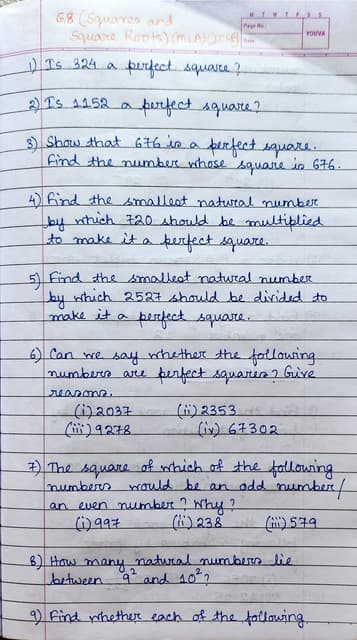 G.8 (Squares and
Square Roots) (M.L.A) (ICSE)
M T W T F S S
Page No.:
Date:
YOUVA
1) Is 324 a perfect square?
2) Is 1152 a perfect square?
3) Show that 676 is a perfect square.
Find the number whose square is 676.
4) Find the smallest natural number
by which 720 should be multiplied
to make it a perfect square.
5) Find the smallest natural number
by which 2527 should be divided to
make it a perfect square.
6) Can we say whether the following
numbers are perfect squares? Give
reasons.
(i) 2037 (ii) 2353
(iii) 9278 (iv) 67302
7) The square of which of the following
numbers would be an odd number/
an even number? Why?
(i) 997 (ii) 238 (iii) 579
8) How many natural numbers lie
between 9² and 10²?
9) Find whether each of the following